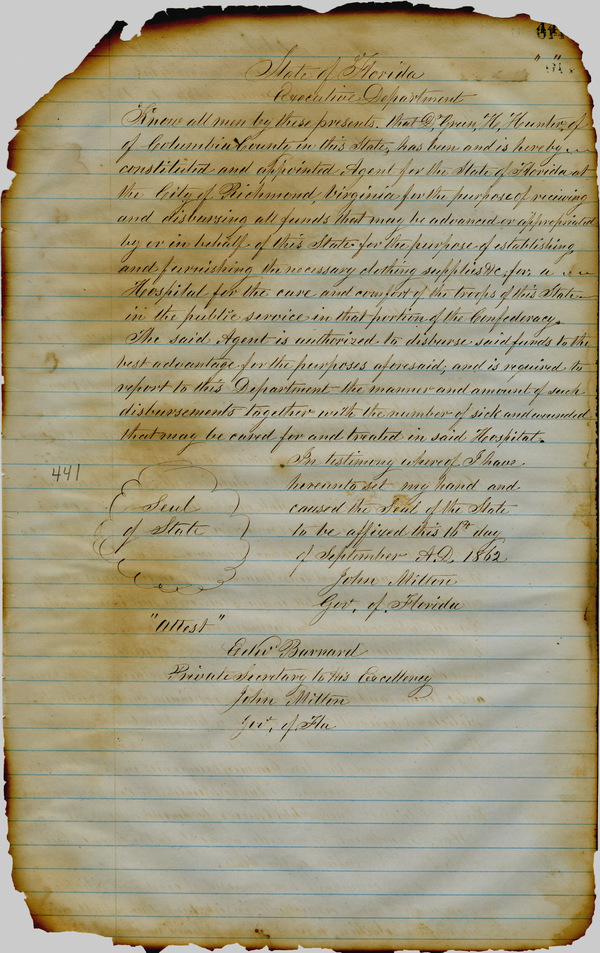 State of Florida
Executive Department
Know all men by these presents, that D, Gren, H, Hunter, of
of Columbia County in this State, has been and is hereby
constituted and appointed Agent for the State of Florida at
the City of Richmond, Virginia for the purpose of receiving
and disbursing all funds that may be advanced or appropriated
by or in behalf of this State for the purpose of establishing
and furnishing the necessary clothing supplies &c. for a
Hospital for the care and comfort of the troops of this State
in the public service in that portion of the Confederacy.
The said Agent is authorized to disburse said funds to the
best advantage for the purposes aforesaid; and is required to
report to this Department the manner and amount of such
disbursements together with the number of sick and wounded
that may be cared for and treated in said Hospital.
In testimony whereof I have
hereunto set my hand and
caused the Seal of the State
to be affixed this 16th day
of September A.D. 1862
John Milton
Gov. of Florida
441
Seal
of State
"Attest"
Edwd Barnard
Private Secretary to his Excellency
John Milton
Govt. of Fla